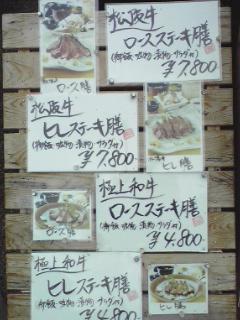 松阪牛
ロースステーキ膳
(御飯 味噌 漬物 サラダ付)
¥7,800
ロース膳
松阪牛
ヒレステーキ膳
(御飯 味噌 漬物 サラダ付)
¥7,800
ヒレ膳
極上和牛
ロースステーキ膳
(御飯 味噌 漬物 サラダ付)
¥4,800
ロース膳
極上和牛
ヒレステーキ膳
(御飯 味噌 漬物 サラダ付)
¥4,800
ヒレ膳